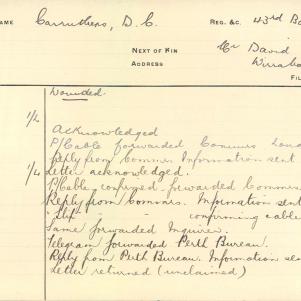 NAME Carruthers, D. C. REG. &C. 43rd Ba
NEXT OF KIN Mr David
ADDRESS Wirraba
FIL
Wounded.
1/4
Acknowledged
P/Cable forwarded Commrs Lond
Reply from Commrs. Information sent
1/4 Letter acknowledged.
P/Cable confirmed forwarded Commrs
Reply from Commrs. Information sent
"Slip" " " confirming cable
Same forwarded Inquirer.
Telegram forwarded Perth Bureau.
Reply from Perth Bureau. Information sen
Letter returned (unclaimed)